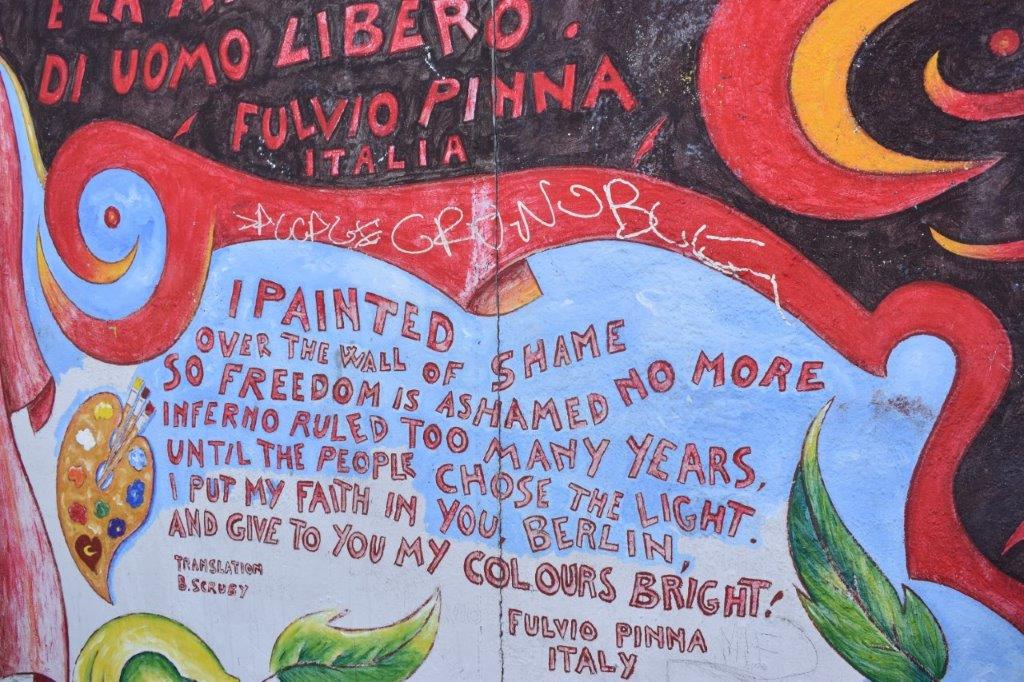 E LA
DI UOMO LIBERO.
FULVIO PINNA
ITALIA
I PAINTED
OVER THE WALL OF SHAME
SO FREEDOM IS ASHAMED NO MORE
INFERNO RULED TOO MANY YEARS,
UNTIL THE PEOPLE CHOSE THE LIGHT.
I PUT MY FAITH IN YOU BERLIN,
AND GIVE TO YOU MY COLOURS BRIGHT!
TRANSLATION
B. SCRUBY
FULVIO PINNA
ITALY